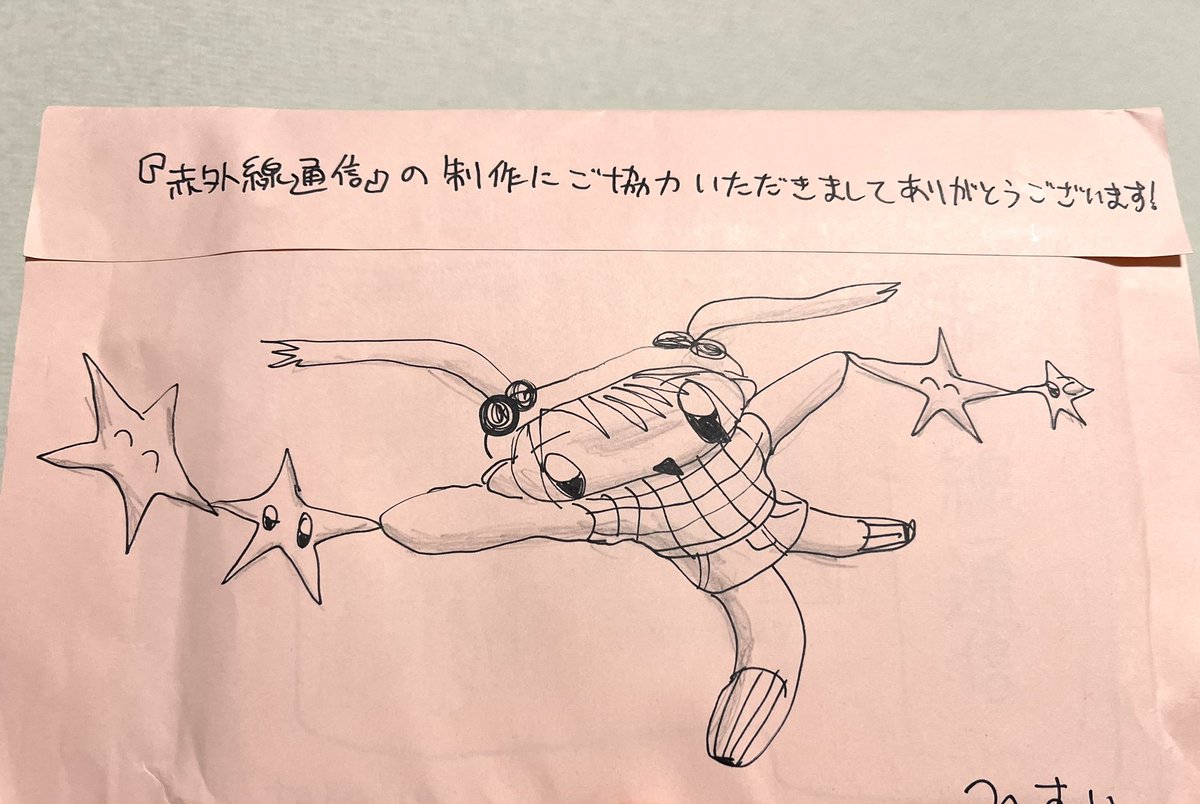 『赤外線通信』の制作にご協力いただきましてありがとうございます!